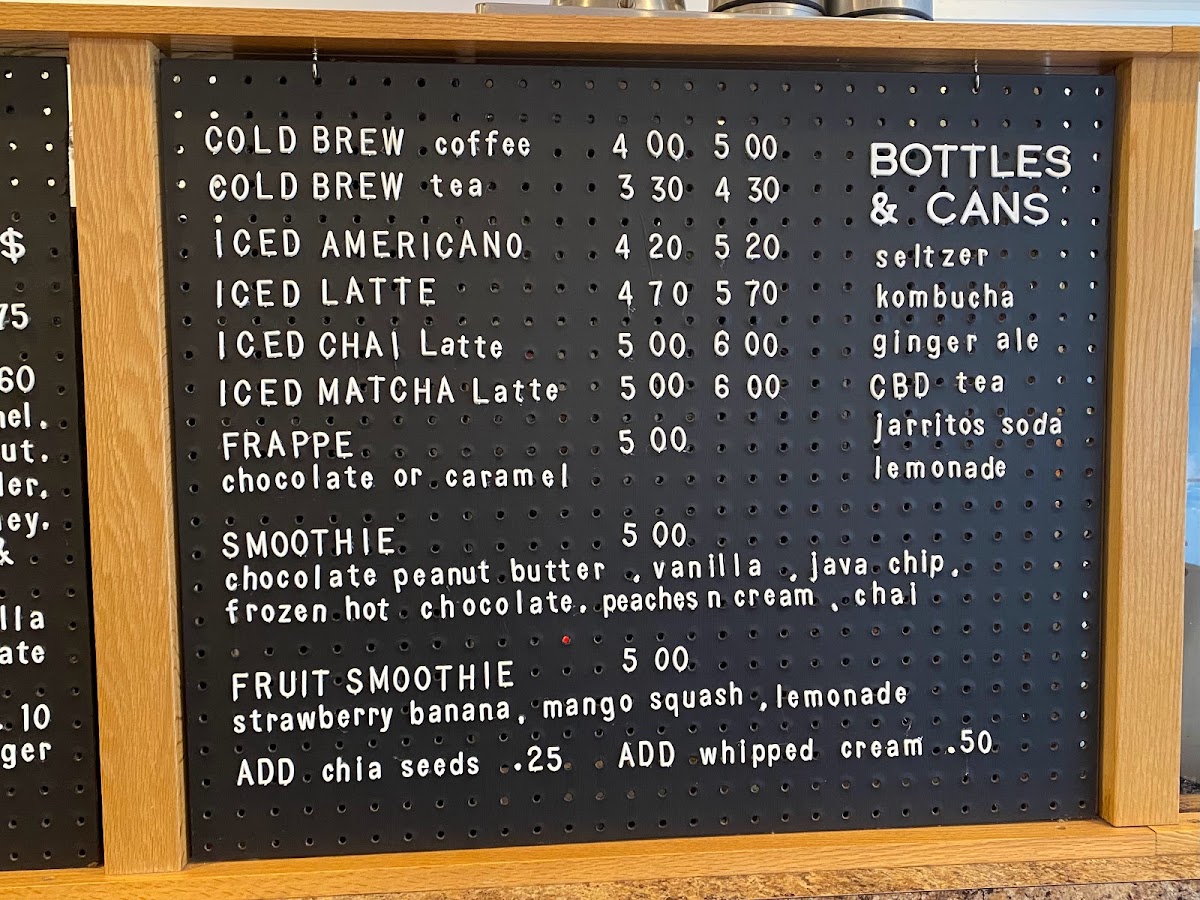 $
75
60
nel.
ut.
ler.
ey.
&
lla
ate
. 10
ger
COLD BREW coffee 4 00 5 00
COLD BREW tea 3 30 4 30
ICED AMERICANO 4 20 5 20
ICED LATTE 4 70 5 70
ICED CHAI Latte 5 00 6 00
ICED MATCHA Latte 5 00 6 00
FRAPPE 5 00
chocolate or caramel
SMOOTHIE 5 00
chocolate peanut butter , vanilla , java chip,
frozen hot chocolate, peaches n cream , chai
FRUIT SMOOTHIE 5 00
strawberry banana, mango squash , lemonade
ADD chia seeds .25 ADD whipped cream .50
BOTTLES
& CANS
seltzer
kombucha
ginger ale
CBD tea
jarritos soda
lemonade